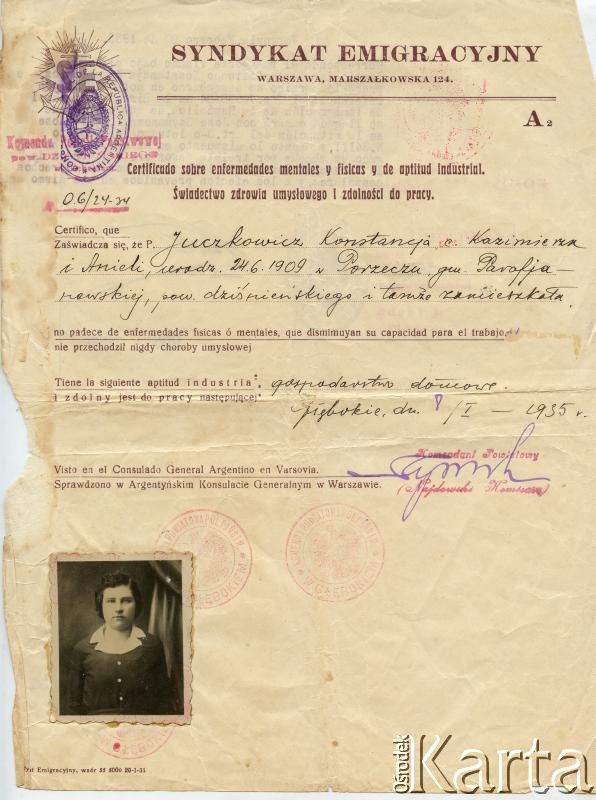 SYNDYKAT EMIGRACYJNY
WARSZAWA, MARSZAŁKOWSKA 124.
A2
DE LA REPUBLICA ARGENTINA
Komenda Powiatowej
pow.
06/24-34
Certificado sobre enfermedades mentales y fisicas y de aptitud industrial.
Świadectwo zdrowia umysłowego i zdolności do pracy.
Certifico, que
Zaświadcza się, że P. Juczkowicz Konstancja, c. Kazimierza
i Anieli, urodz. 24.6.1909 w Porzeczu, gm. Parafja-
nowskiej, pow. dziśnieńskiego i tamże zamieszkała.
no padece de enfermedades fisicas ó mentales, que dismimuyan su capacidad para el trabajo.
nie przechodził nigdy choroby umysłowej
Tiene la siguiente aptitud industrial: gospodarstwo domowe.
i zdolny jest do pracy następującej:
Głębokie, dn. 8/I — 1935 r.
Komendant Powiatowy
Visto en el Consulado General Argentino en Varsovia.
Sprawdzono w Argentyńskim Konsulacie Generalnym w Warszawie.
(Najdowski Komisarz)
W GŁĘBOKIEM
W GŁĘBOKIEM
GŁĘBOKIEM
Emigracyjny, wzór 55 5000 20-1-31
Ośrodek
Karta